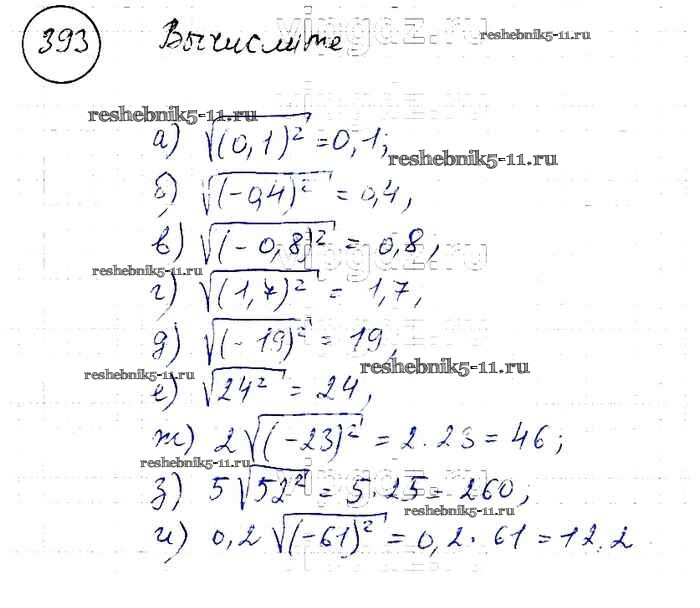 393 Вычислите
vipgdz.ru
reshebnik5-11.ru
reshebnik5-11.ru
а) √(0,1)² = 0,1;
reshebnik5-11.ru
б) √(-0,4)² = 0,4,
в) √(-0,8)² = 0,8,
vipgdz.ru
reshebnik5-11.ru
г) √(1,7)² = 1,7,
д) √(-19)² = 19,
reshebnik5-11.ru
reshebnik5-11.ru
е) √24² = 24,
ж) 2√(-23)² = 2·23 = 46;
reshebnik5-11.ru
vipgdz.ru
з) 5√52² = 5·25 = 260,
reshebnik5-11.ru
и) 0,2√(-61)² = 0,2·61 = 12,2